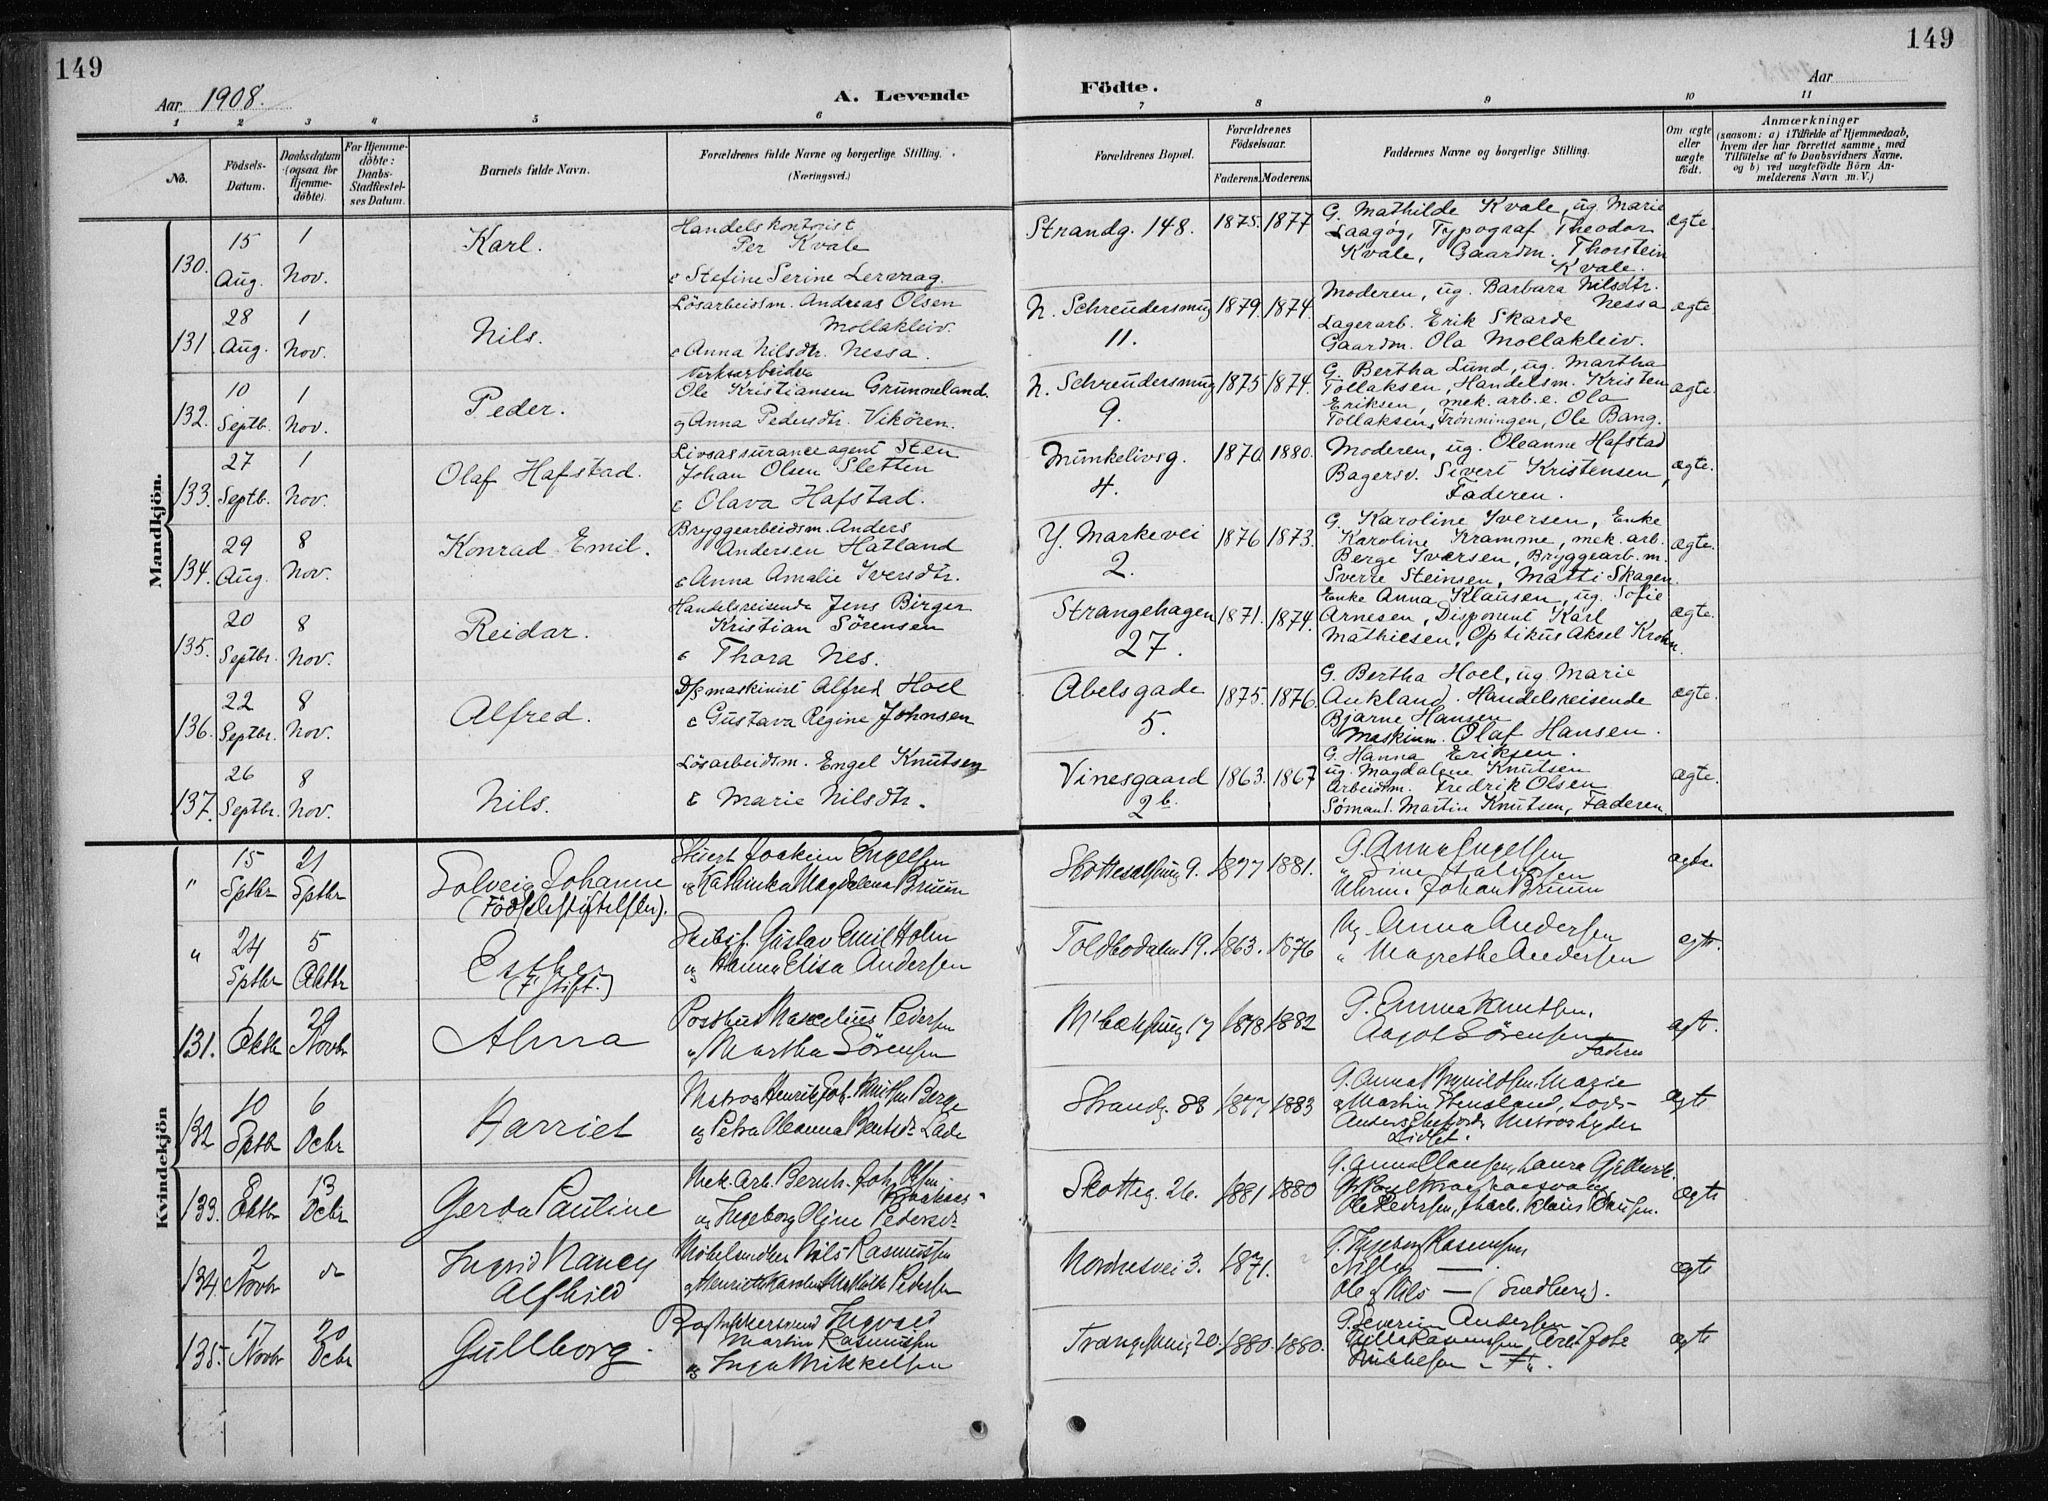 149
149
Aar 1908.
A. Levende
Födte.
Aar
1 2 3 4 5 6 7 8 9 10 11
No.
Födsels-Datum.
Daabsdatum (ogsaa for Hjemmedöbte).
For Hjemmedöbte: Daabs-Stadfæstelses Datum.
Barnets fulde Navn.
Forældrenes fulde Navne og borgerlige Stilling.
(Næringsvei.)
Forældrenes Bopæl.
Forældrenes Födselsaar.
Faderens. Moderens.
Faddernes Navne og borgerlige Stilling.
Om ægte eller uægte födt.
Anmærkninger
(saasom: a) i Tilfælde af Hjemmedaab, hvem der har forrettet samme, med Tilföielse af to Daabsvidners Navne, og b) ved uægtefödte Börn Anmelderens Navn m. V.)
Mandkjön.
130. 15 Aug. 1 Nov. Karl.
Handelskontorist
Per Kvale
e Stefine Serine Lervaag.
Strandg. 148. 1875. 1877
G. Mathilde Kvale, ug. Marie
Laagøg, Typograf Theodor
Kvale, Gaardm. Thorstein
Kvale.
ægte.
131. 28 Aug. 1 Nov. Nils.
Lösarbeidsm. Andreas Olsen
Mollakleiv.
e Anna Nilsdtr. Nessa.
N. Schreudersmug 11. 1879. 1874.
Moderen, ug. Barbara Nilsdtr.
Nessa
Lagerarb. Erik Skarde
Gaardm. Ola Mollakleiv.
ægte
132. 10 Septb. 1 Nov. Peder.
Verksarbeider
Ole Kristiansen Grunneland.
og Anna Pedersdtr. Vikören.
N. Schreudersmug 9. 1875 1874.
G. Bertha Lund, ug. Martha
Tollaksen, Handelsm. Kristen
Eriksen, mek. arb. e. Ola
Tollaksen, Frönningen, Ole Bang.
ægte.
133. 27 Septb. 1 Nov. Olaf Hafstad.
Livsassuranceagent Sten
Johan Olsen Sletten
e Olava Hafstad.
Munkelivsg. 4. 1870. 1880.
Moderen, ug. Oleanne Hafstad
Bagersv. Sivert Kristensen,
Faderen.
ægte.
134. 29 Aug. 8 Nov. Konrad Emil.
Bryggearbeidsm. Anders
Andersen Hatland
e Anna Amalie Iversdtr.
Y. Markevei 2. 1876 1873.
G. Karoline Iversen, Enke
Karoline Kramme, mek. arb.
Berge Iversen, Bryggearb. m.
Sverre Steinsen, Matti Skagen.
ægte.
135. 20 Septbr. 8 Nov. Reidar.
Handelsreisende Jens Birger
Kristian Sörensen
e Thora Nes.
Strangehagen 27. 1871. 1874.
Enke Anna Klausen, ug. Sofie
Arnesen, Disponent Karl
Mathiesen, Optikus Aksel Krohn.
ægte.
136. 22 Septbr. 8 Nov. Alfred.
D/S maskinist Alfred Hoel
e Gustava Regine Johnsen
Abelsgade 5. 1875. 1876.
G. Bertha Hoel, ug. Marie
Aukland, Handelsreisende
Bjarne Hansen
Maskinm. Olaf Hansen.
ægte.
137. 26 Septbr. 8 Nov. Nils.
Lösarbeidsm. Engel Knutsen
e Marie Nilsdtr.
Vinesgaard 2b. 1863. 1867
G. Hanna Eriksen.
ug. Magdalene Knutsen
Arbeidsm. Fredrik Olsen
Sömand. Martin Knutsen, Faderen
ægte.
Kvindekjön
" 15 Sptbr 21 Sptbr Solveig Johanne
(Födselsstiftelsen).
Joakim Engelsen
og Kathinka Magdalena Bruun
9. 1877 1881.
G. Anna Engelsen
Uhrm. Johan Bruun
ægte
" 24 Sptbr 5 Oktbr Esther
(F. stift.)
Gustav Emil Holm
og Hanna Elisa Andersen
Toldbodalm 19. 1863. 1876
Ug. Anna Andersen
" Magrethe Andersen
ægte.
131. 1 Oktbr 29 Novbr Alma
Postbud Marcelius Pedersen
og Martha Sörensen
17 1878 1882
G. Emma Knutsen,
Aagot Sörensen
Faderen
ægt.
132 10 Sptbr 6 Dcbr Harriet
Matros Henrik Joh. Knutsen Berge
og Petra Oleanna Lade
Strandg. 88 1877 1883
G. Anna Marie
Martin
ægte
133. 8 Oktbr 13 Dcbr Gerda Pauline
Mek. Arb. Bernh. Joh. Olsen
og Ingeborg Oline Pedersdtr
Skotteg. 26. 1881 1880
G. Anna Clausen, Laura
Ole Pedersen, Klaus Clausen.
ægte
134. 2 Novbr do Ingrid Nancy
Alfhild
Möbelsnedker Nils Rasmussen
og Henriette Pedersen
Nordnesvei 3. 1871.
G. Ingeborg Rasmussen,
Nelly —
Ole og Nils — (Snedkere).
ægte
135. 17 Novbr 20 Dcbr Gullborg.
Ingvald
Martin Rasmussen
og Inga Mikkelsen
20. 1880. 1880.
G. Severin Andersen
Mikkelsen
ægte